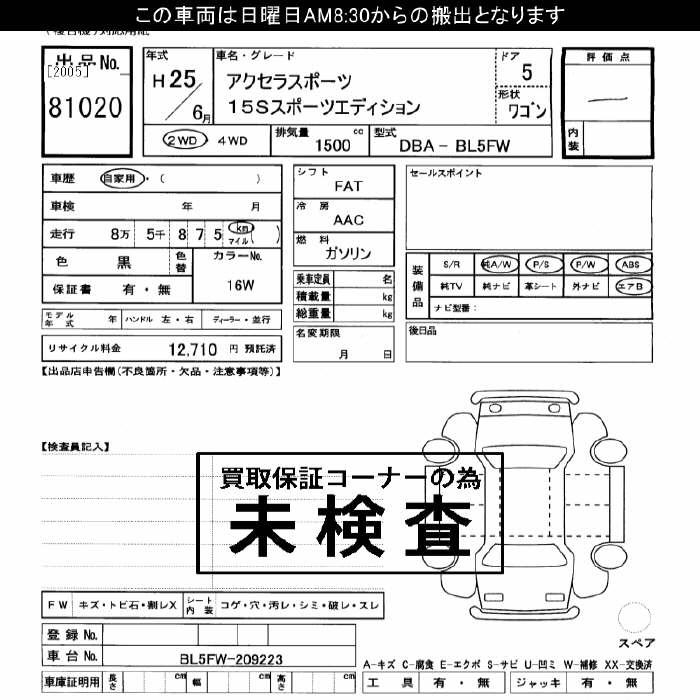 この車両は日曜日AM8:30からの搬出となります
出品No.
[2005]
81020
年式
H25/6月
車名・グレード
アクセラスポーツ
15Sスポーツエディション
ドア
5
形状
ワゴン
評価点
内装
2WD・4WD
排気量 1500 cc
型式 DBA-BL5FW
車歴 自家用・( )
車検 年 月
走行 8万 5千 8 7 5 km マイル ( )
色 黒 色替
カラーNo.
16W
保証書 有・無
モデル年式 年 ハンドル 左・右 ディーラー・並行
リサイクル料金 12,710 円 預託済
シフト
FAT
冷房
AAC
燃料
ガソリン
乗車定員 名
積載量 kg
総重量 kg
名変期限
月 日
セールスポイント
装備品
S/R 純A/W P/S P/W ABS
純TV 純ナビ 革シート 外ナビ エアB
ナビ型番:
後日品
【出品店申告欄(不良箇所・欠品・注意事項等)】
【検査員記入】
買取保証コーナーの為
未検査
FW キズ・トビ石・割レX シート内装 コゲ・穴・汚レ・シミ・破レ・スレ
登録No.
車台No. BL5FW-209223
車庫証明用 長さ cm 幅 cm 高さ cm
スペア
A-キズ C-腐食 E-エクボ S-サビ U-凹ミ W-補修 XX-交換済
工具 有・無 ジャッキ 有・無